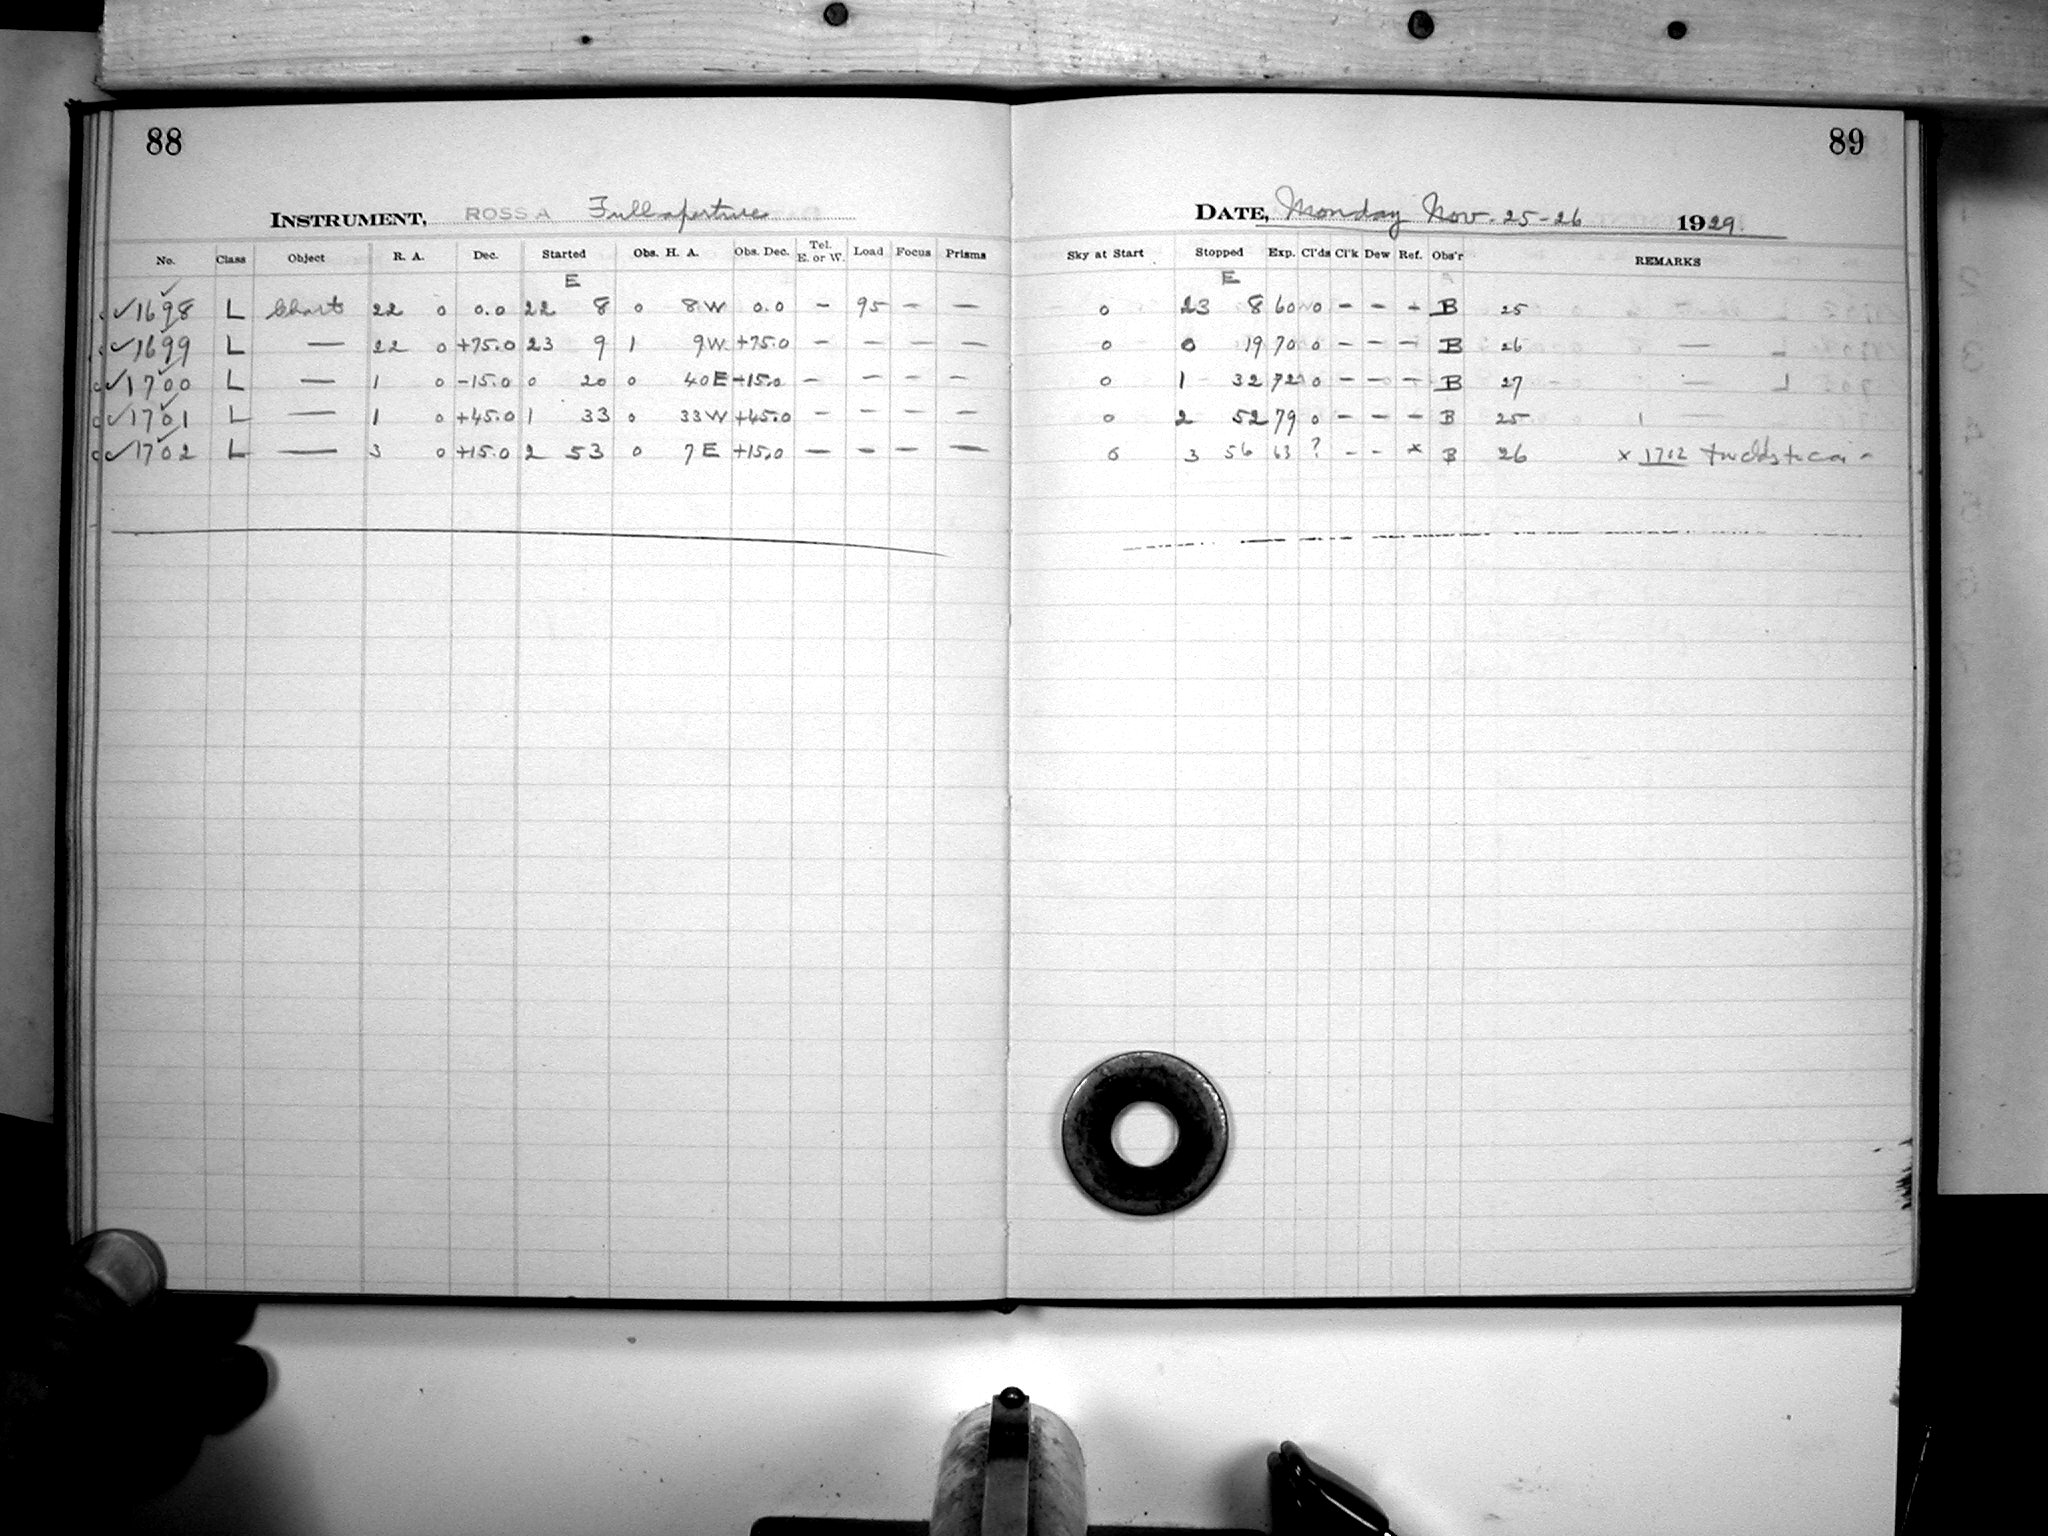 88
INSTRUMENT, ROSS A Full aperture
No. Class Object R. A. Dec. Started Obs. H. A. Obs. Dec. Tel. E. or W. Load Focus Prisms
E
✓1698 L Chart 22 0 0.0 22 8 0 8 W 0.0 — 95 — —
✓1699 L — 22 0 +75.0 23 9 1 9 W +75.0 — — — —
✓1700 L — 1 0 -15.0 0 20 0 40 E -15.0 — — — —
✓1701 L — 1 0 +45.0 1 33 0 33 W +45.0 — — — —
✓1702 L — 3 0 +15.0 2 53 0 7 E +15.0 — — — —
89
DATE, Monday Nov. 25-26 1929
Sky at Start Stopped Exp. Cl'ds Cl'k Dew Ref. Obs'r REMARKS
E
0 23 8 60 0 — — — B 25
0 0 19 70 0 — — — B 26
0 1 32 72 0 — — — B 27
0 2 52 79 0 — — — B 25
0 3 56 63 ? — — x B 26 x 1702